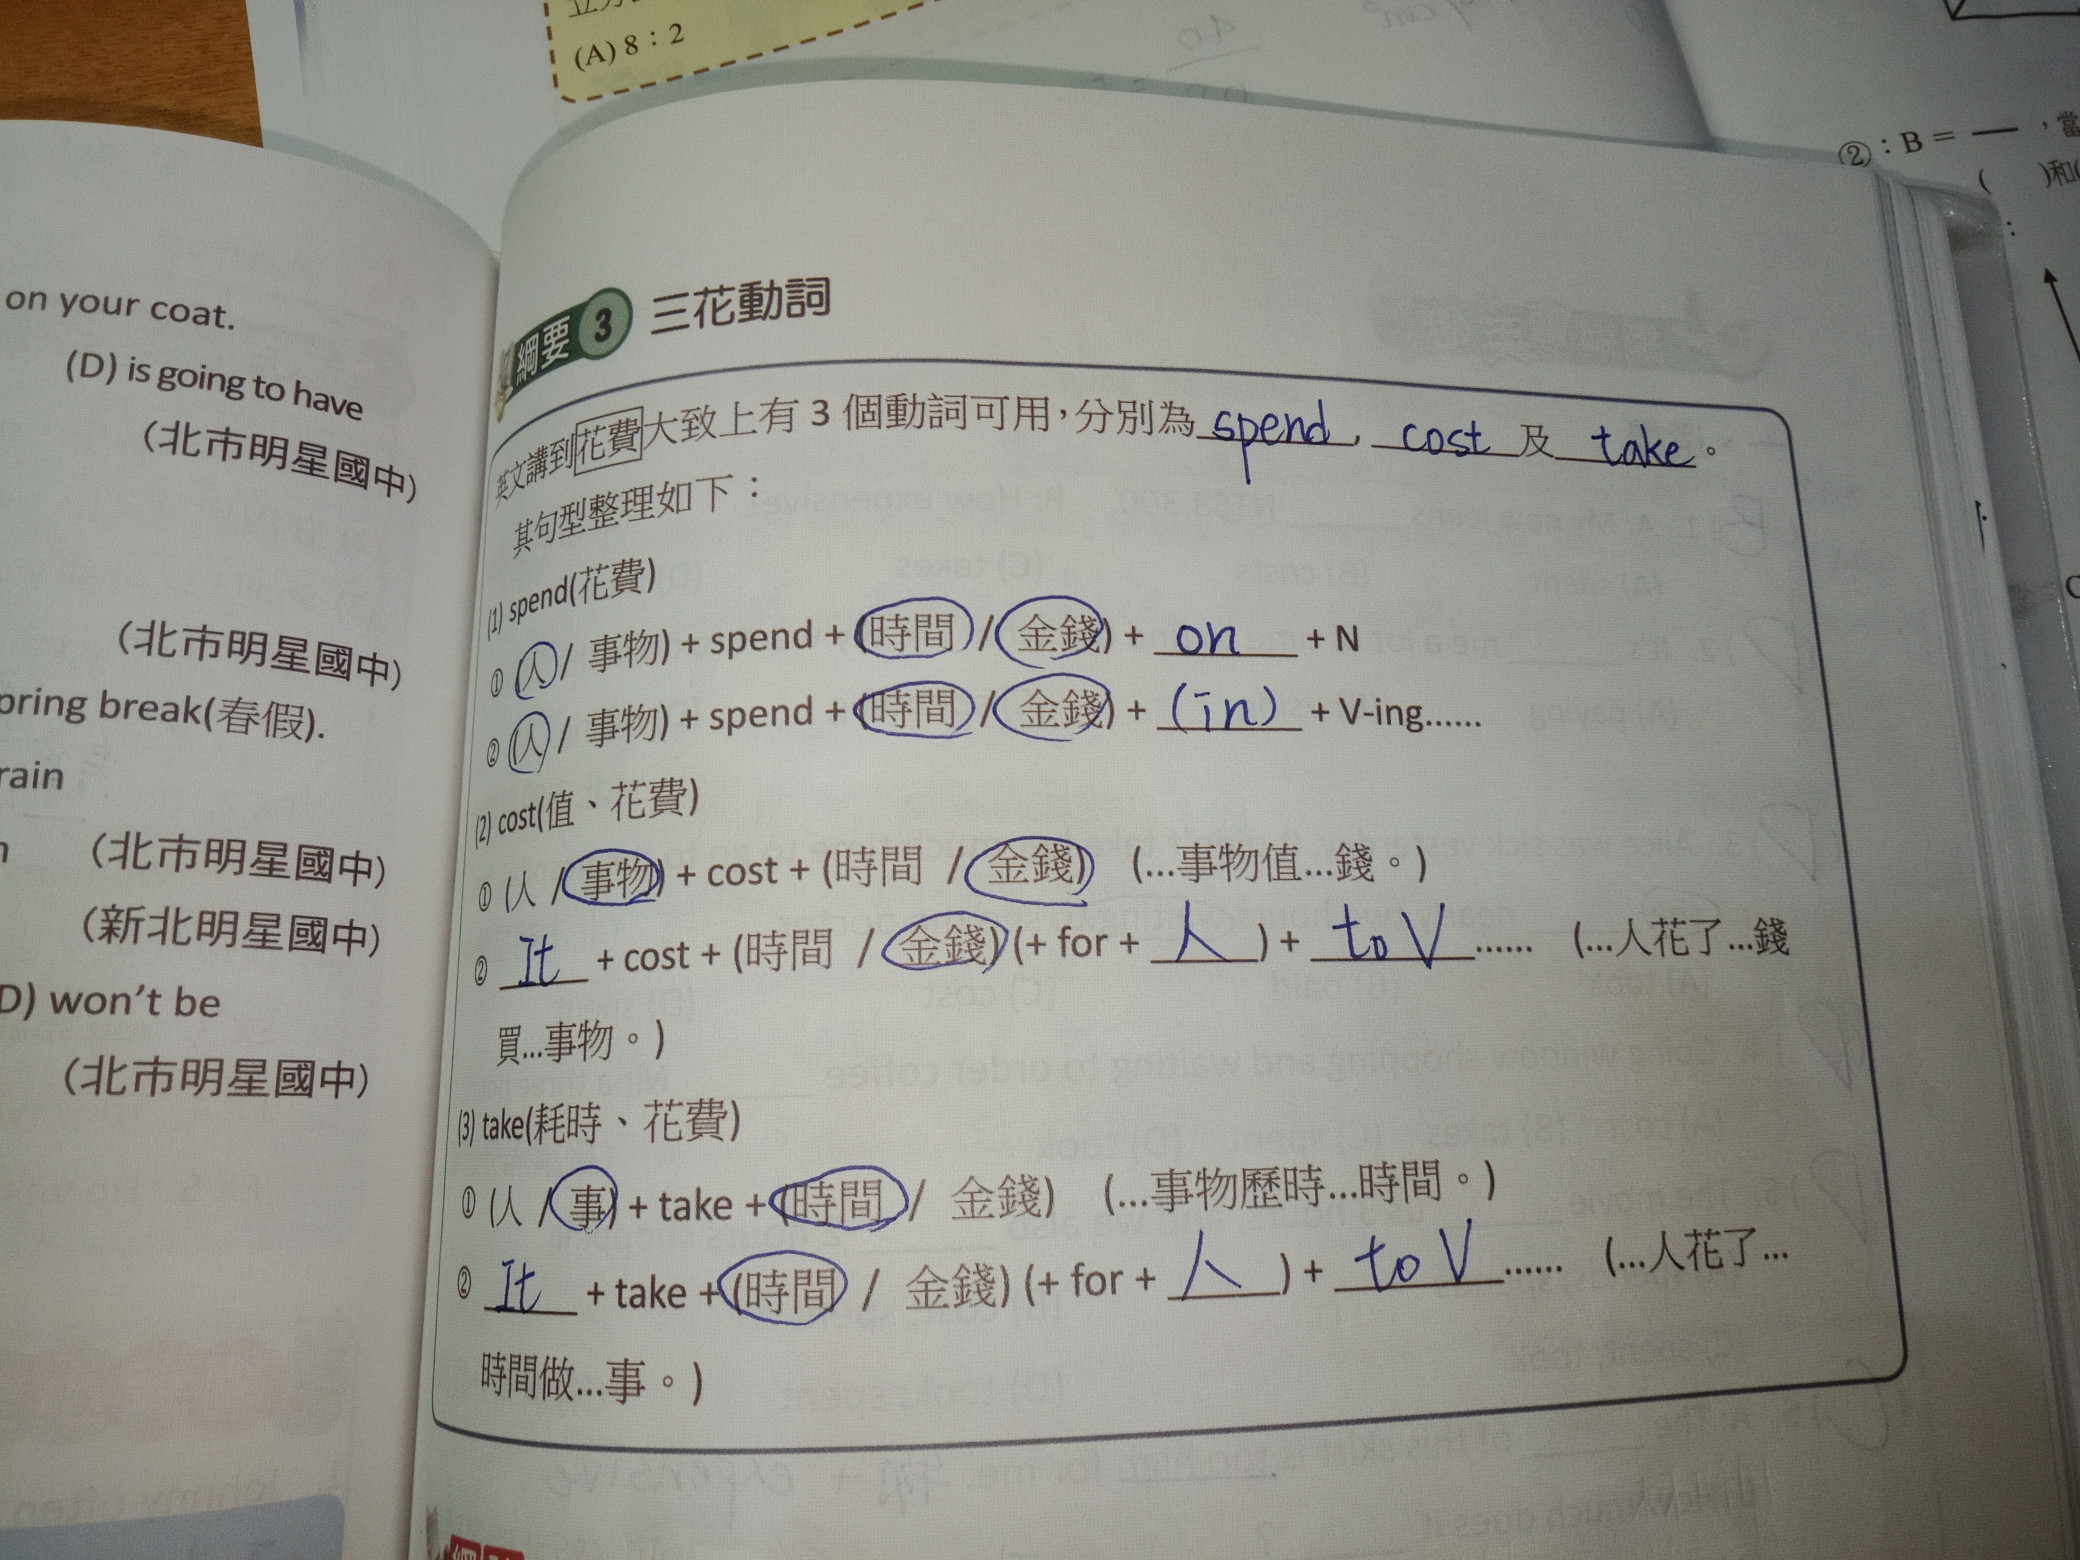 (A) 8：2
②：B = ，當
( )和(
on your coat.
(D) is going to have
(北市明星國中)
(北市明星國中)
pring break(春假).
rain
(北市明星國中)
(新北明星國中)
D) won't be
(北市明星國中)
綱要 3 三花動詞
英文講到花費大致上有 3 個動詞可用，分別為 spend , cost 及 take 。
其句型整理如下：
(1) spend(花費)
① (人 / 事物) + spend + (時間 / 金錢) + on + N
② (人 / 事物) + spend + (時間 / 金錢) + (in) + V-ing……
(2) cost(值、花費)
① (人 / 事物) + cost + (時間 / 金錢) (…事物值…錢。)
② It + cost + (時間 / 金錢) (+ for + 人 ) + to V …… (…人花了…錢
買…事物。)
(3) take(耗時、花費)
① (人 / 事) + take + (時間 / 金錢) (…事物歷時…時間。)
② It + take + (時間 / 金錢) (+ for + 人 ) + to V …… (…人花了…
時間做…事。)